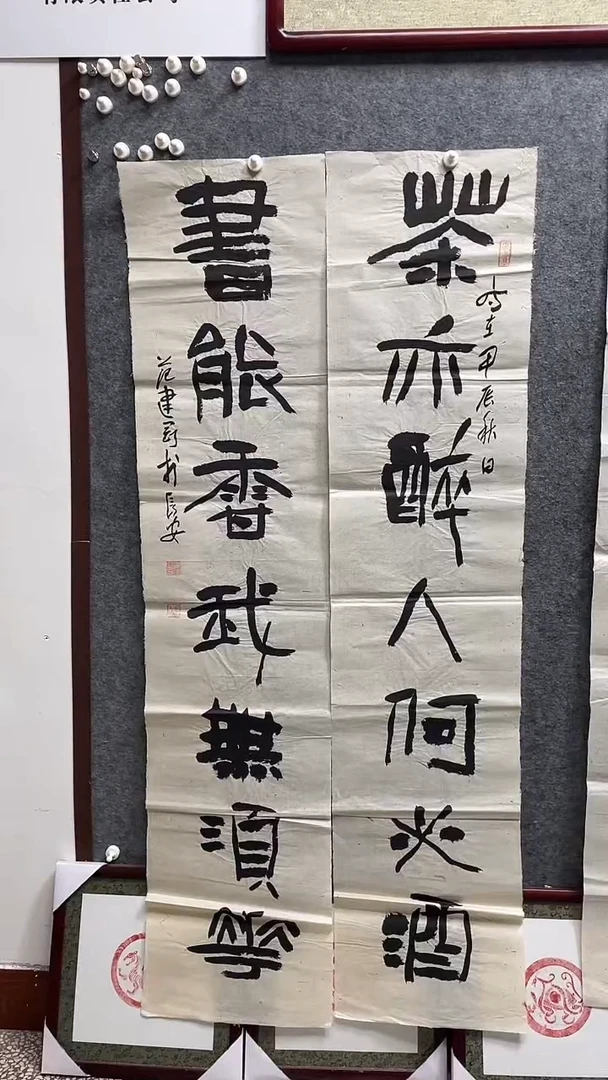 茶亦醉人何必酒
歲在甲辰秋日
書能香我無須華
范建 於長安